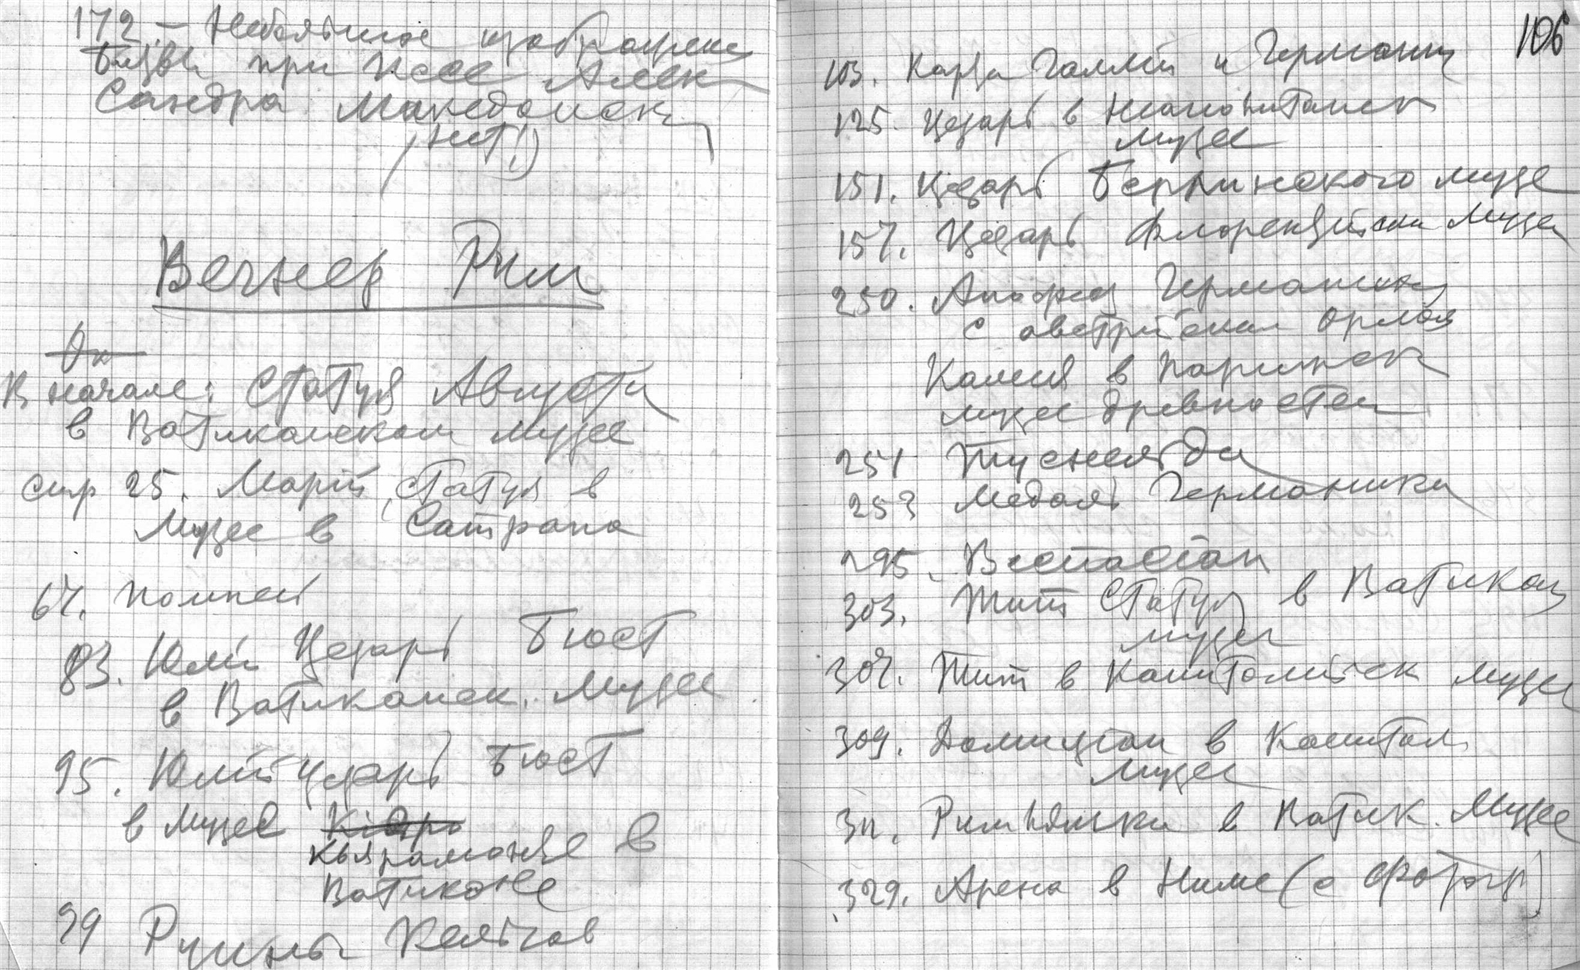 172 – Небольшое изображение
битвы при Иссе Алек
сандра Македонск
(нет!)
Вегнер Рим
В начале: Статуя Августа
в Ватиканском музее
стр 25. Марий, статуя в
Музее в
67. Помпей
83. Юлий Цезарь Бюст
в Ватиканск. Музее
95. Юлий Цезарь бюст
в музее
Кьярамонте в
Ватикане
99 Руины Кельтов
106
103. Карта Галлии и Германии
125. Цезарь в Неаполитанск
музее
151. Цезарь Берлинского музея
157. Цезарь Флорентийск Музея
250. Германика
с австрийским орлом
Камея в Парижск
музее древностей
251 Туснельда
253 Медаль Германика
295. Веспасіан
303. Тит Статуя в Ватикан
музее
307. Тит в Капитолийск музее
309. Домициан в Капитол
музее
311. Римлянка в Ватик. Музее
329. Арена в Ниме (с фотогр)